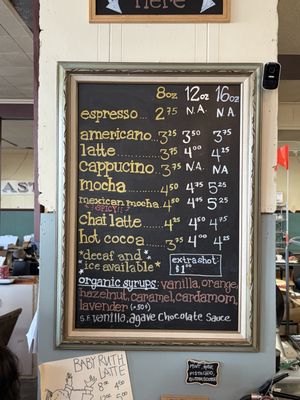 Here
8oz 12oz 16oz
espresso... 2.75 N.A. N.A.
americano... 3.25 3.50 3.75
latte... 3.75 4.00 4.25
cappuccino... 3.75 N.A. N.A.
mocha... 4.50 4.75 5.25
mexican mocha 4.50 4.75 5.25
(SPICY!!)
chai latte... 4.25 4.50 4.75
hot cocoa... 3.75 4.00 4.25
*decaf and
ice available*
extra shot:
$1.00
organic syrups: vanilla, orange,
hazelnut, caramel, cardamom,
lavender (+.50¢)
S.F. vanilla, agave Chocolate Sauce
BABY RUTH
LATTE
8oz 4.50
12oz 5.00
AST